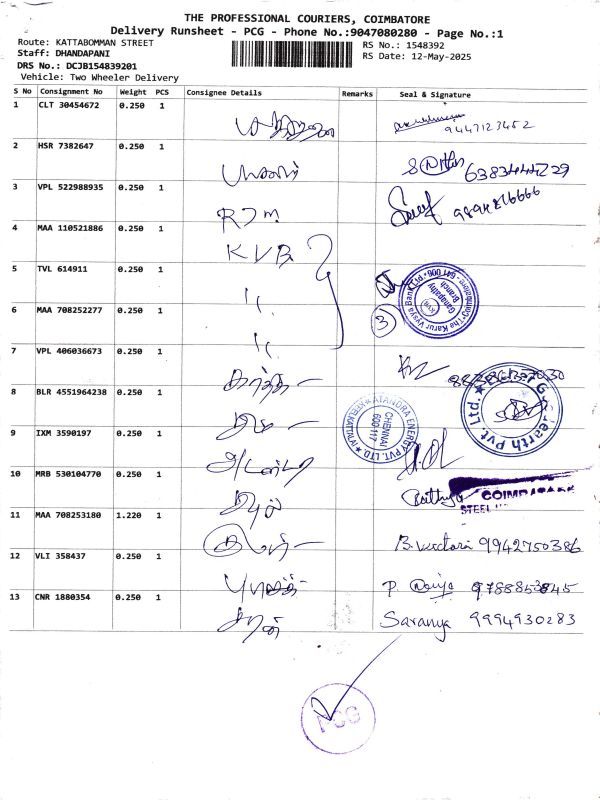 THE PROFESSIONAL COURIERS, COIMBATORE
Delivery Runsheet - PCG - Phone No.:9047080280 - Page No.:1
Route: KATTABOMMAN STREET
RS No.: 1548392
Staff: DHANDAPANI
RS Date: 12-May-2025
DRS No.: DCJB154839201
Vehicle: Two Wheeler Delivery
S No Consignment No Weight PCS Consignee Details Remarks Seal & Signature
1 CLT 30454672 0.250 1
9447123452
2 HSR 7382647 0.250 1
6383444729
3 VPL 522988935 0.250 1
RJM
4 MAA 110521886 0.250 1
KVB
5 TVL 614911 0.250 1
The Karur Vysya Bank Ltd
Ganapathy Branch
Coimbatore - 641 006
6 MAA 708252277 0.250 1
3
7 VPL 406036673 0.250 1
கார்த்தி
8 BLR 4551964238 0.250 1
ATANDRA ENERGY PVT. LTD
CHENNAI
600 117
9 IXM 3590197 0.250 1
10 MRB 530104770 0.250 1
COIMBATORE
STEEL
11 MAA 708253180 1.220 1
9942750386
12 VLI 358437 0.250 1
13 CNR 1880354 0.250 1
Saranya 9994930283
PCG